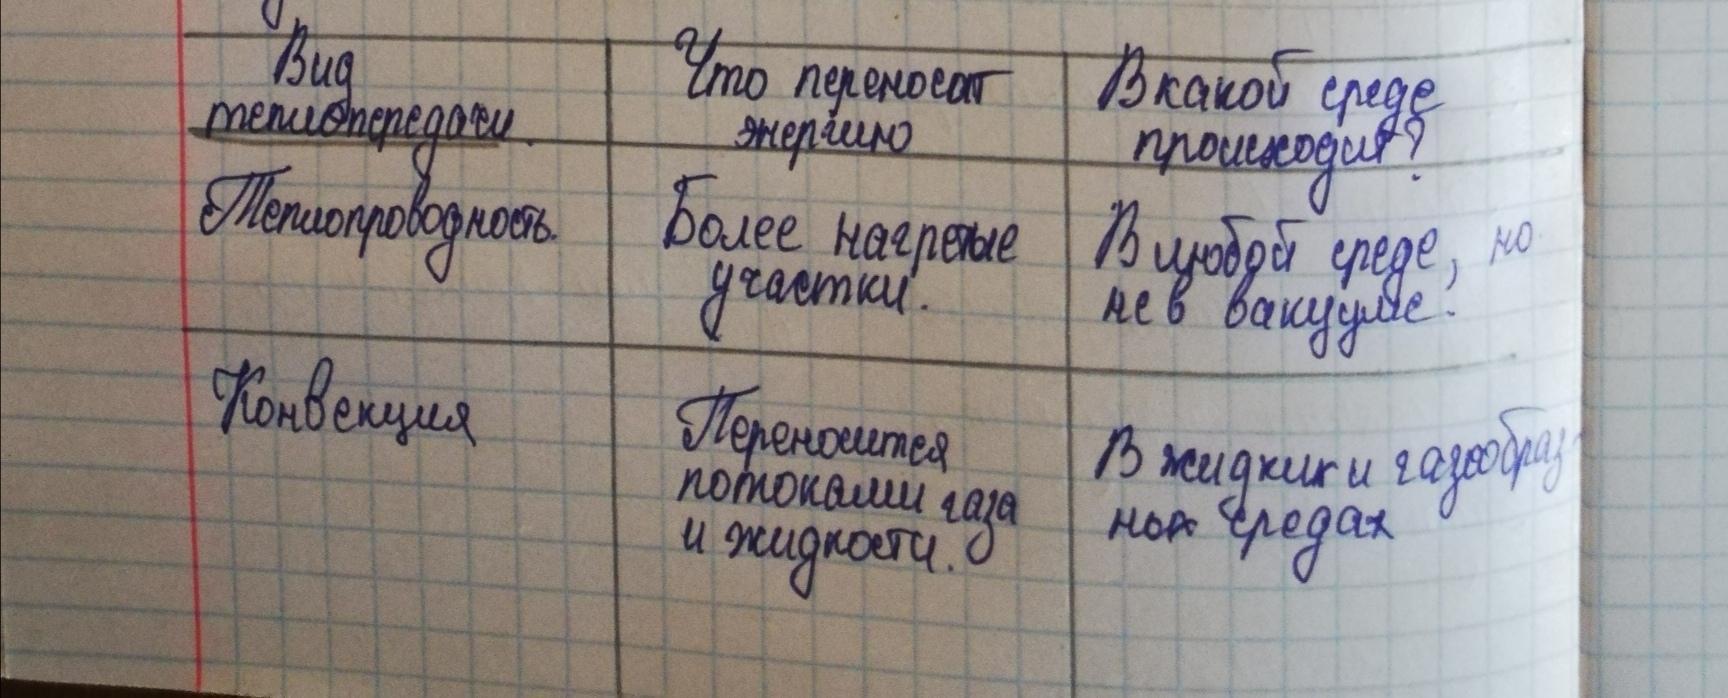 Вид
теплопередачи.
Что переносат
энергию
В какой среде
происходит?
Теплопроводность.
Более нагретые
участки.
В любой среде, но
не в вакууме.
Конвекция
Переносится
потоками газа
и жидкости.
В жидких и газообраз-
ных средах